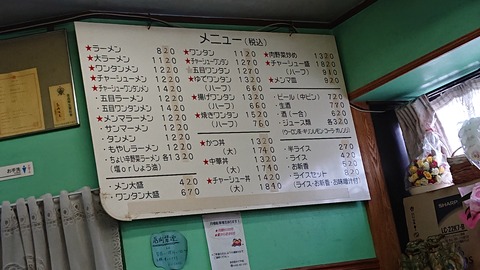 メニュー(税込)
★ラーメン 820
★大ラーメン 1120
★ワンタンメン 1220
★チャーシューメン 1220
★チャーシューワンタンメン 1420
・五目ラーメン 1220
・五目ワンタンメン 1420
★メンマラーメン 1220
・サンマーメン 1220
・タンメン 1220
・もやしラーメン 1220
・ちょい中野菜ラーメン 各1320
(塩orしょう油)
・メン大盛 420
・ワンタン大盛 670
★ワンタン 1120
★チャーシューワンタン 1270
☆五目ワンタン 1270
★ゆでワンタン 1320
(ハーフ) 660
★揚げワンタン 1320
(ハーフ) 660
★焼きワンタン 1520
(ハーフ) 760
★かつ丼 1320
(大) 1740
★中華丼 1320
(大) 1740
★チャーシュー丼 1420
(大) 1840
★肉野菜炒め 1320
★チャーシュー盛 1820
(ハーフ) 910
★メンマ盛 920
・ビール(中ビン) 720
・生酒 720
・酒(一合) 620
・ジュース類 各320
・半ライス 270
・ライス 420
・お新香 520
・ライスセット 820
(ライス・お新香・お味噌汁付)
お手洗
SHARP